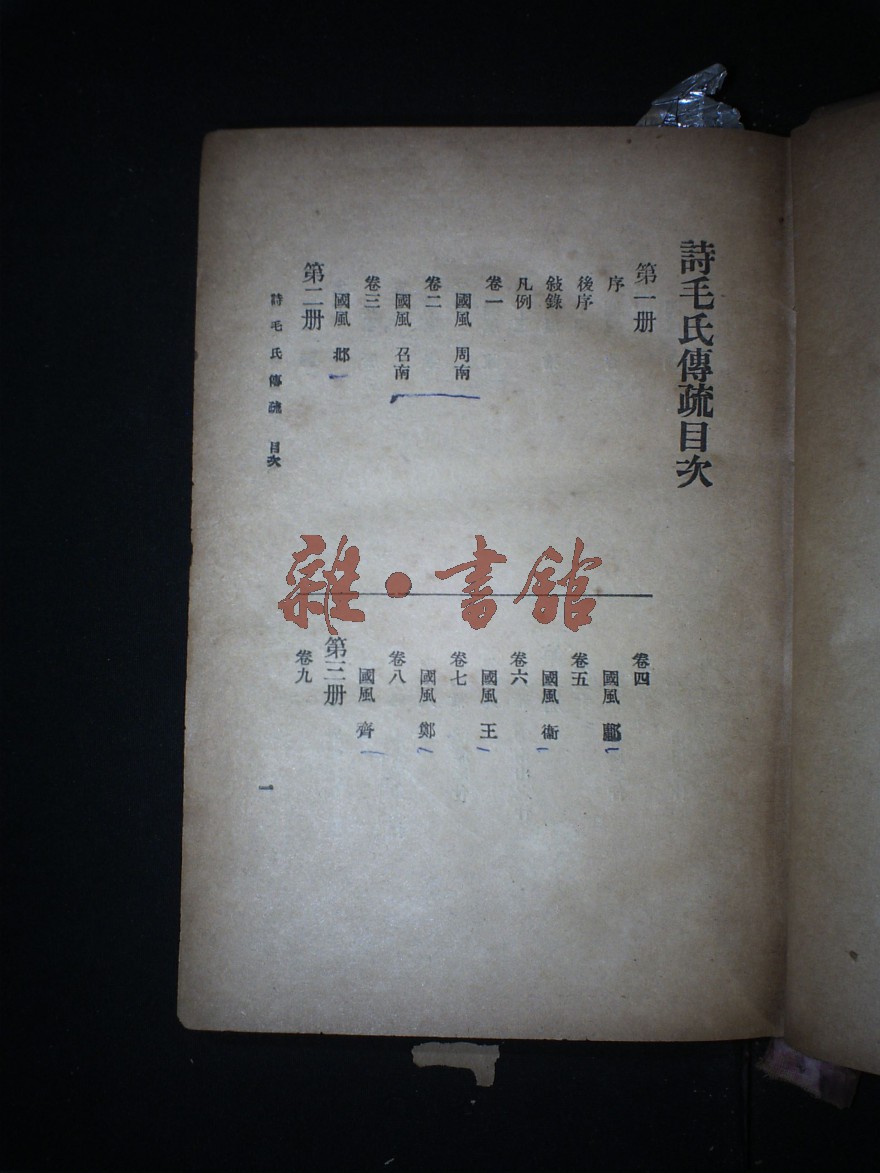 詩毛氏傳疏目次
第一册
序
後序
敍錄
凡例
卷一
國風 周南
卷二
國風 召南
卷三
國風 邶
第二册
卷四
國風 鄘
卷五
國風 衞
卷六
國風 王
卷七
國風 鄭
卷八
國風 齊
第三册
卷九
詩毛氏傳疏 目次
一
雜·書館